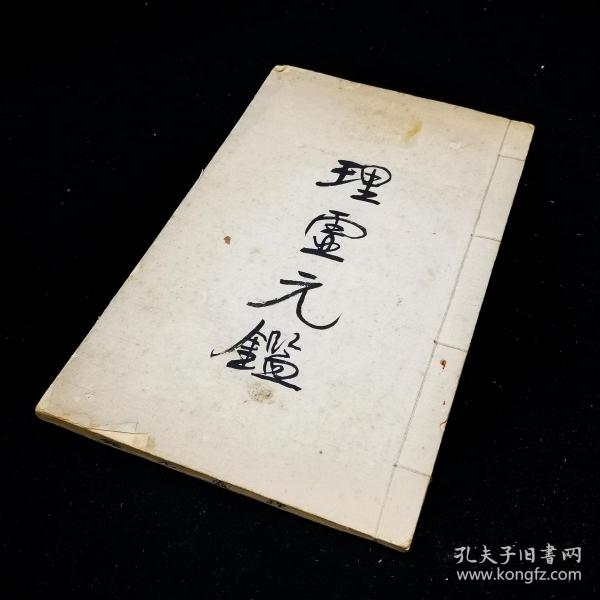 理虛元鑑
孔夫子旧書网
www.kongfz.com